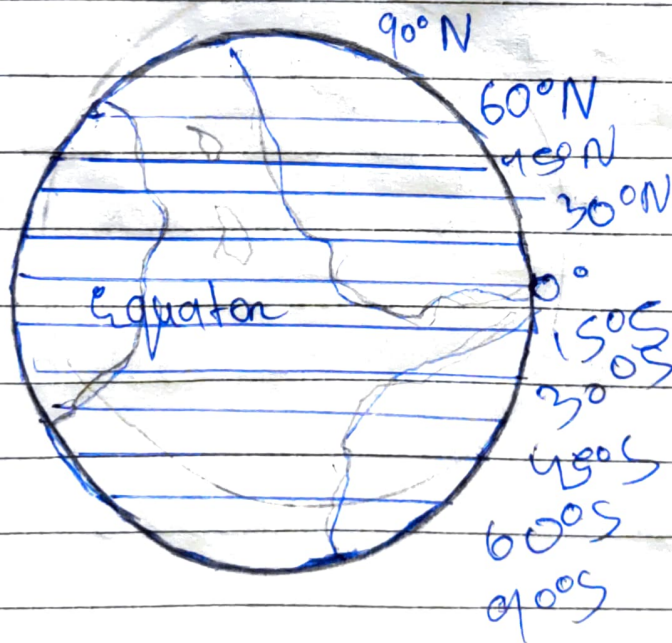 90°N
60°N
45°N
30°N
0°
Equator
15°S
30°S
45°S
60°S
90°S